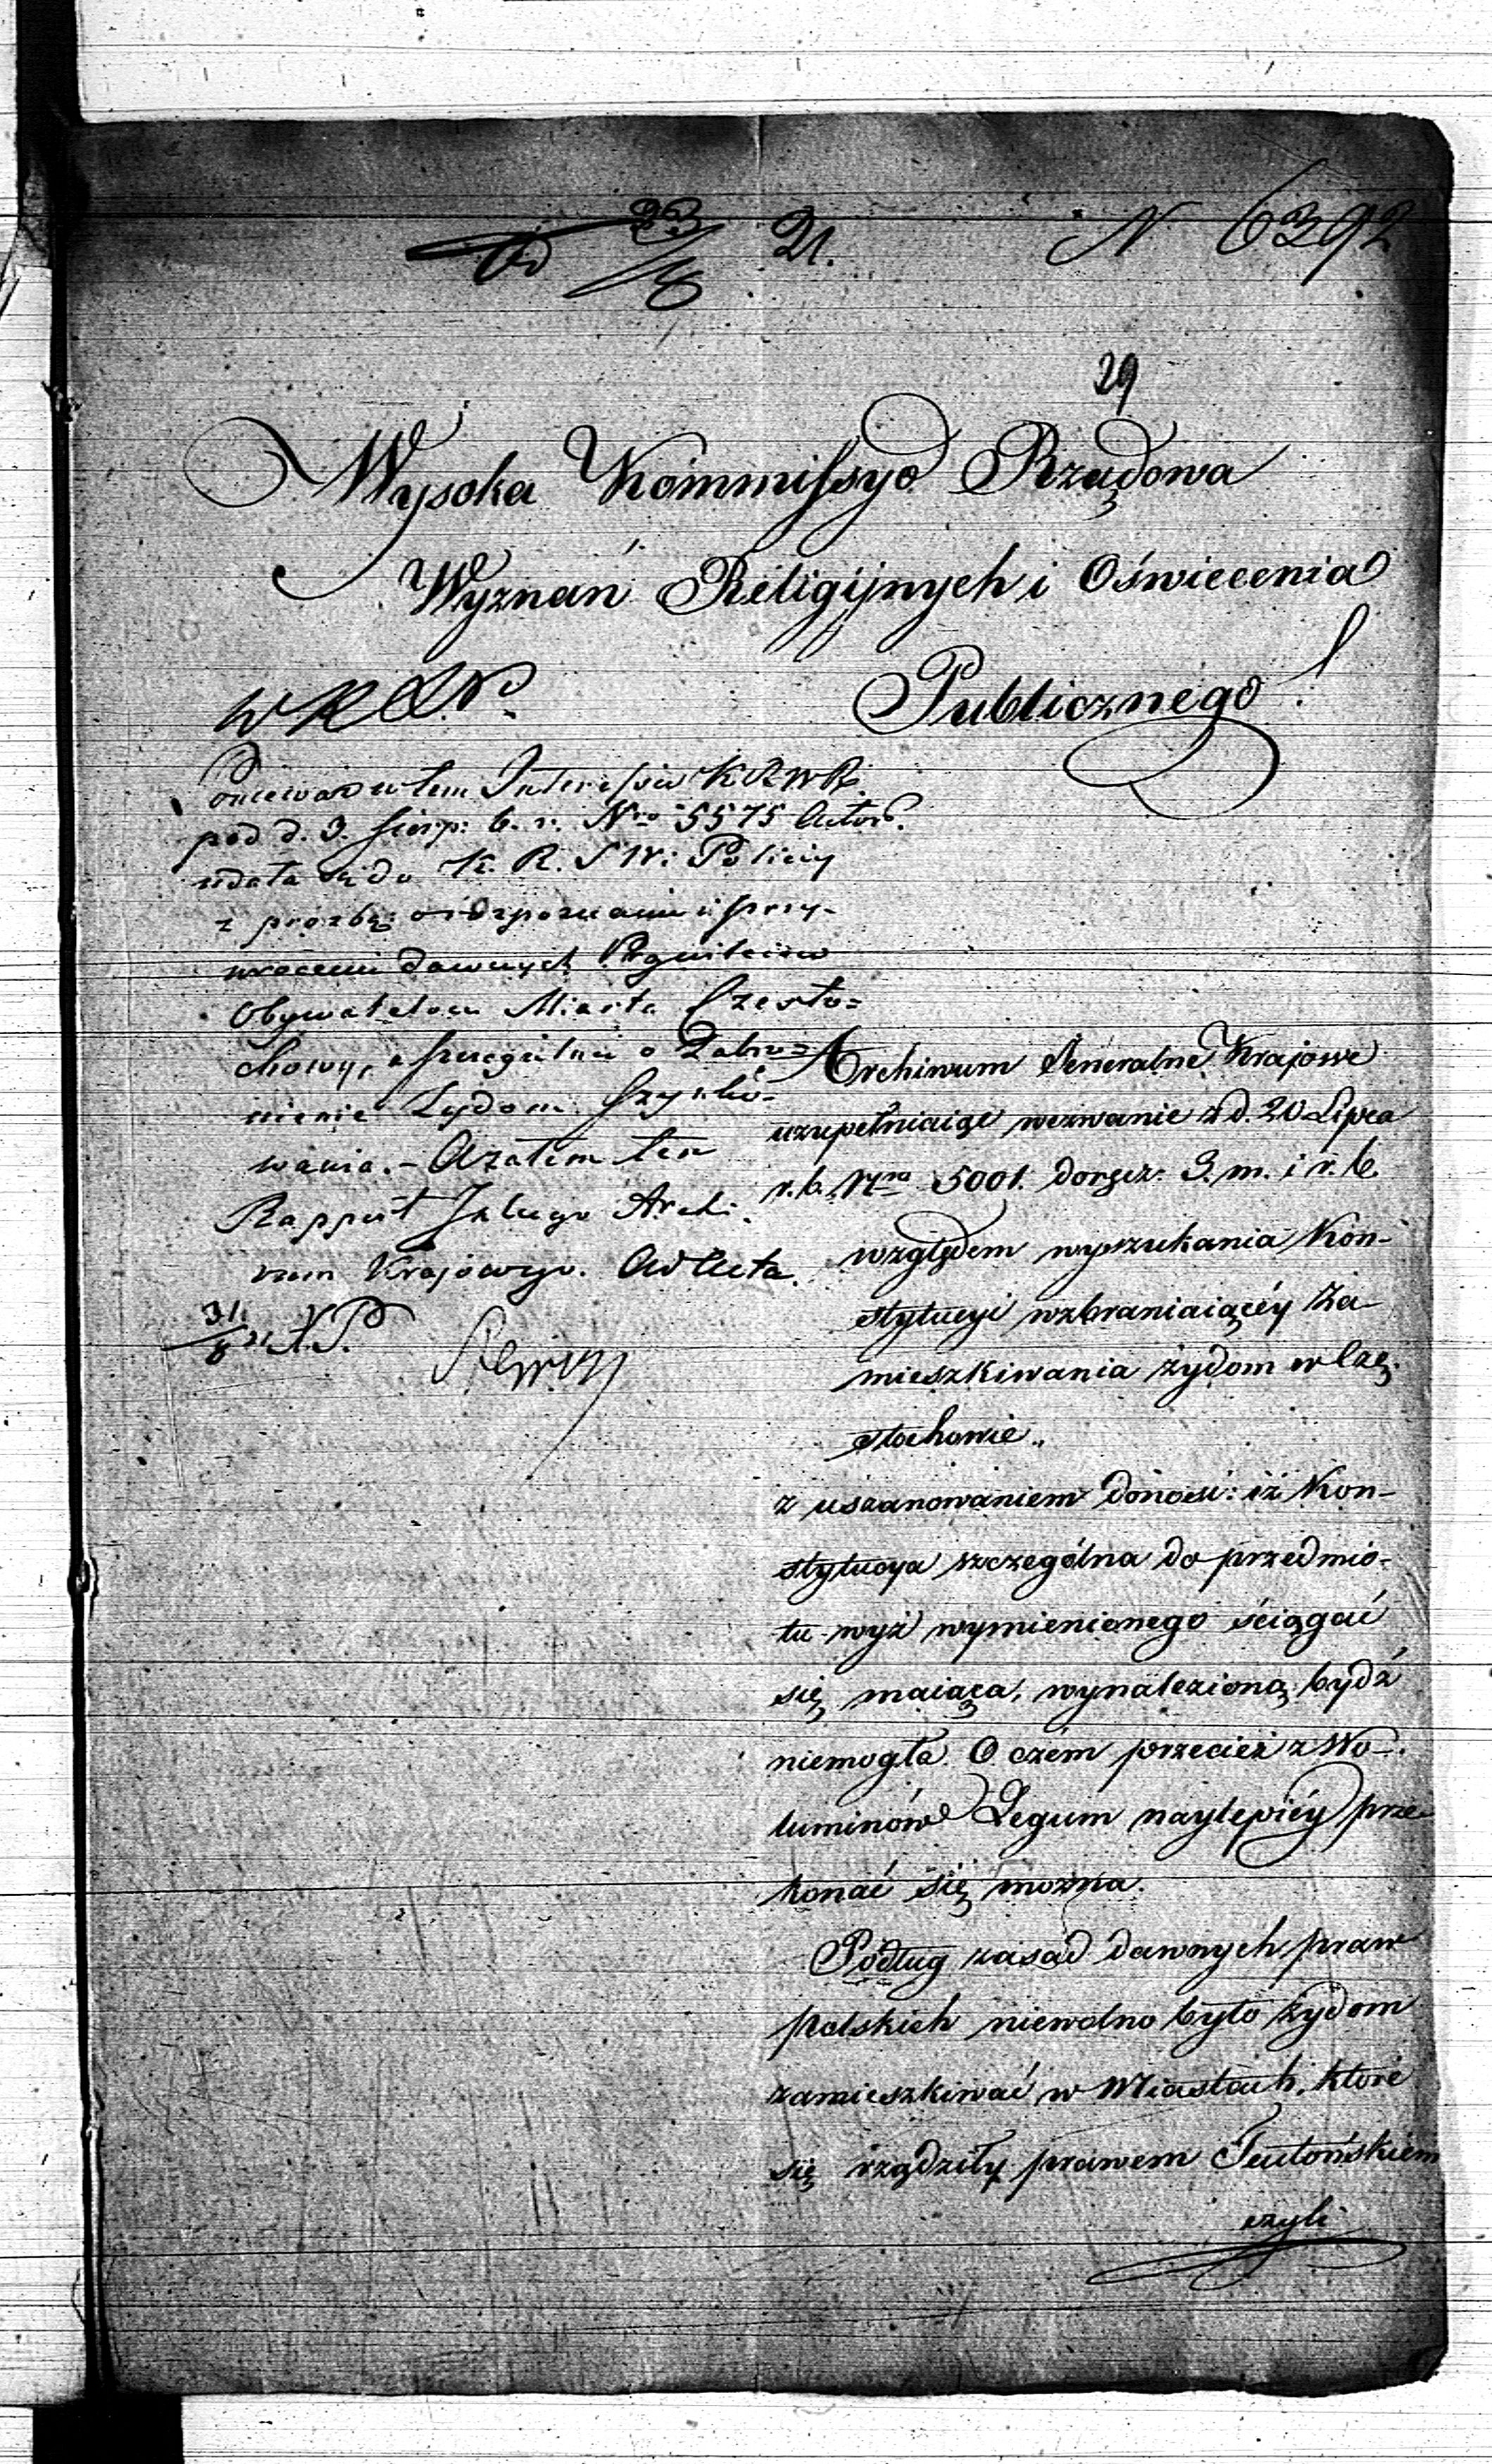 23/8 21.
N 6392
29
Wysoka Kommissyo Rządowa
Wyznań Religijnych i Oświecenia
Publicznego!
Poniewasz w tem Interessie K R W R.
pod d. 3. sierp: b. r. Nro 5575
udała się do K. R. S W: i Policyi
z prozbą o rozpoznanie i przy-
wrócenie dawnych
Obywatelom Miasta Często=
chowy, a szczególnie o Zabro=
nienie Żydom Szynko-
wania. – Azatem ten
Rapport Archi-
wum Krajowego. Ad Acta.
31/8 21.
Archiwum Generalne Krajowe
uzupełniaiąc wezwanie z d. 20 Lipca
r. b. Nro 5001. doręcz: 3. m. i r. b.
względem wyszukania Kon-
stytucyi wzbraniaiącéy za-
mieszkiwania żydom w Czę-
stochowie.,
z uszanowaniem donosi: iż Kon-
stytucya szczególna do przedmio-
tu wyż wymienionego ściągać
się maiąca, wynalezioną bydź
niemogła. O czém przecież z Wo-
luminów Legum naylepiéy prze-
konać się można.
Podług zasad dawnych praw
polskich niewolno było żydom
zamieszkiwać w Miastach, które
się rządziły prawem Teutońskiem
czyli